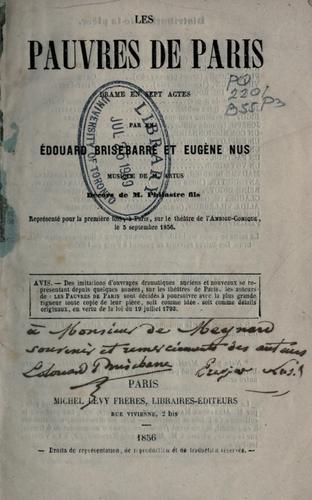 LES
PAUVRES DE PARIS
DRAME EN SEPT ACTES
PAR MM.
ÉDOUARD BRISEBARRE ET EUGÈNE NUS
MUSIQUE DE M. ARTUS
Décors de M. Philastre fils
Représenté pour la première fois, à Paris, sur le théâtre de l'AMBIGU-COMIQUE,
le 5 septembre 1856.
LIBRARY
JUL 1969
UNIVERSITY OF TORONTO
PQ
2201
B55P3
AVIS. — Des imitations d'ouvrages dramatiques anciens et nouveaux se re-
présentant depuis quelques années, sur les théâtres de Paris, les auteurs
de : LES PAUVRES DE PARIS sont décidés à poursuivre avec la plus grande
rigueur toute copie de leur pièce, soit comme idée, soit comme détails
originaux, en vertu de la loi du 19 juillet 1793.
à Monsieur de Meynard
souvenir et remerciements des auteurs
Edouard Brisebarre Eugène Nus
PARIS
MICHEL LÉVY FRÈRES, LIBRAIRES-ÉDITEURS
RUE VIVIENNE, 2 bis
1856
— Droits de représentation, de reproduction et de traduction réservés. —